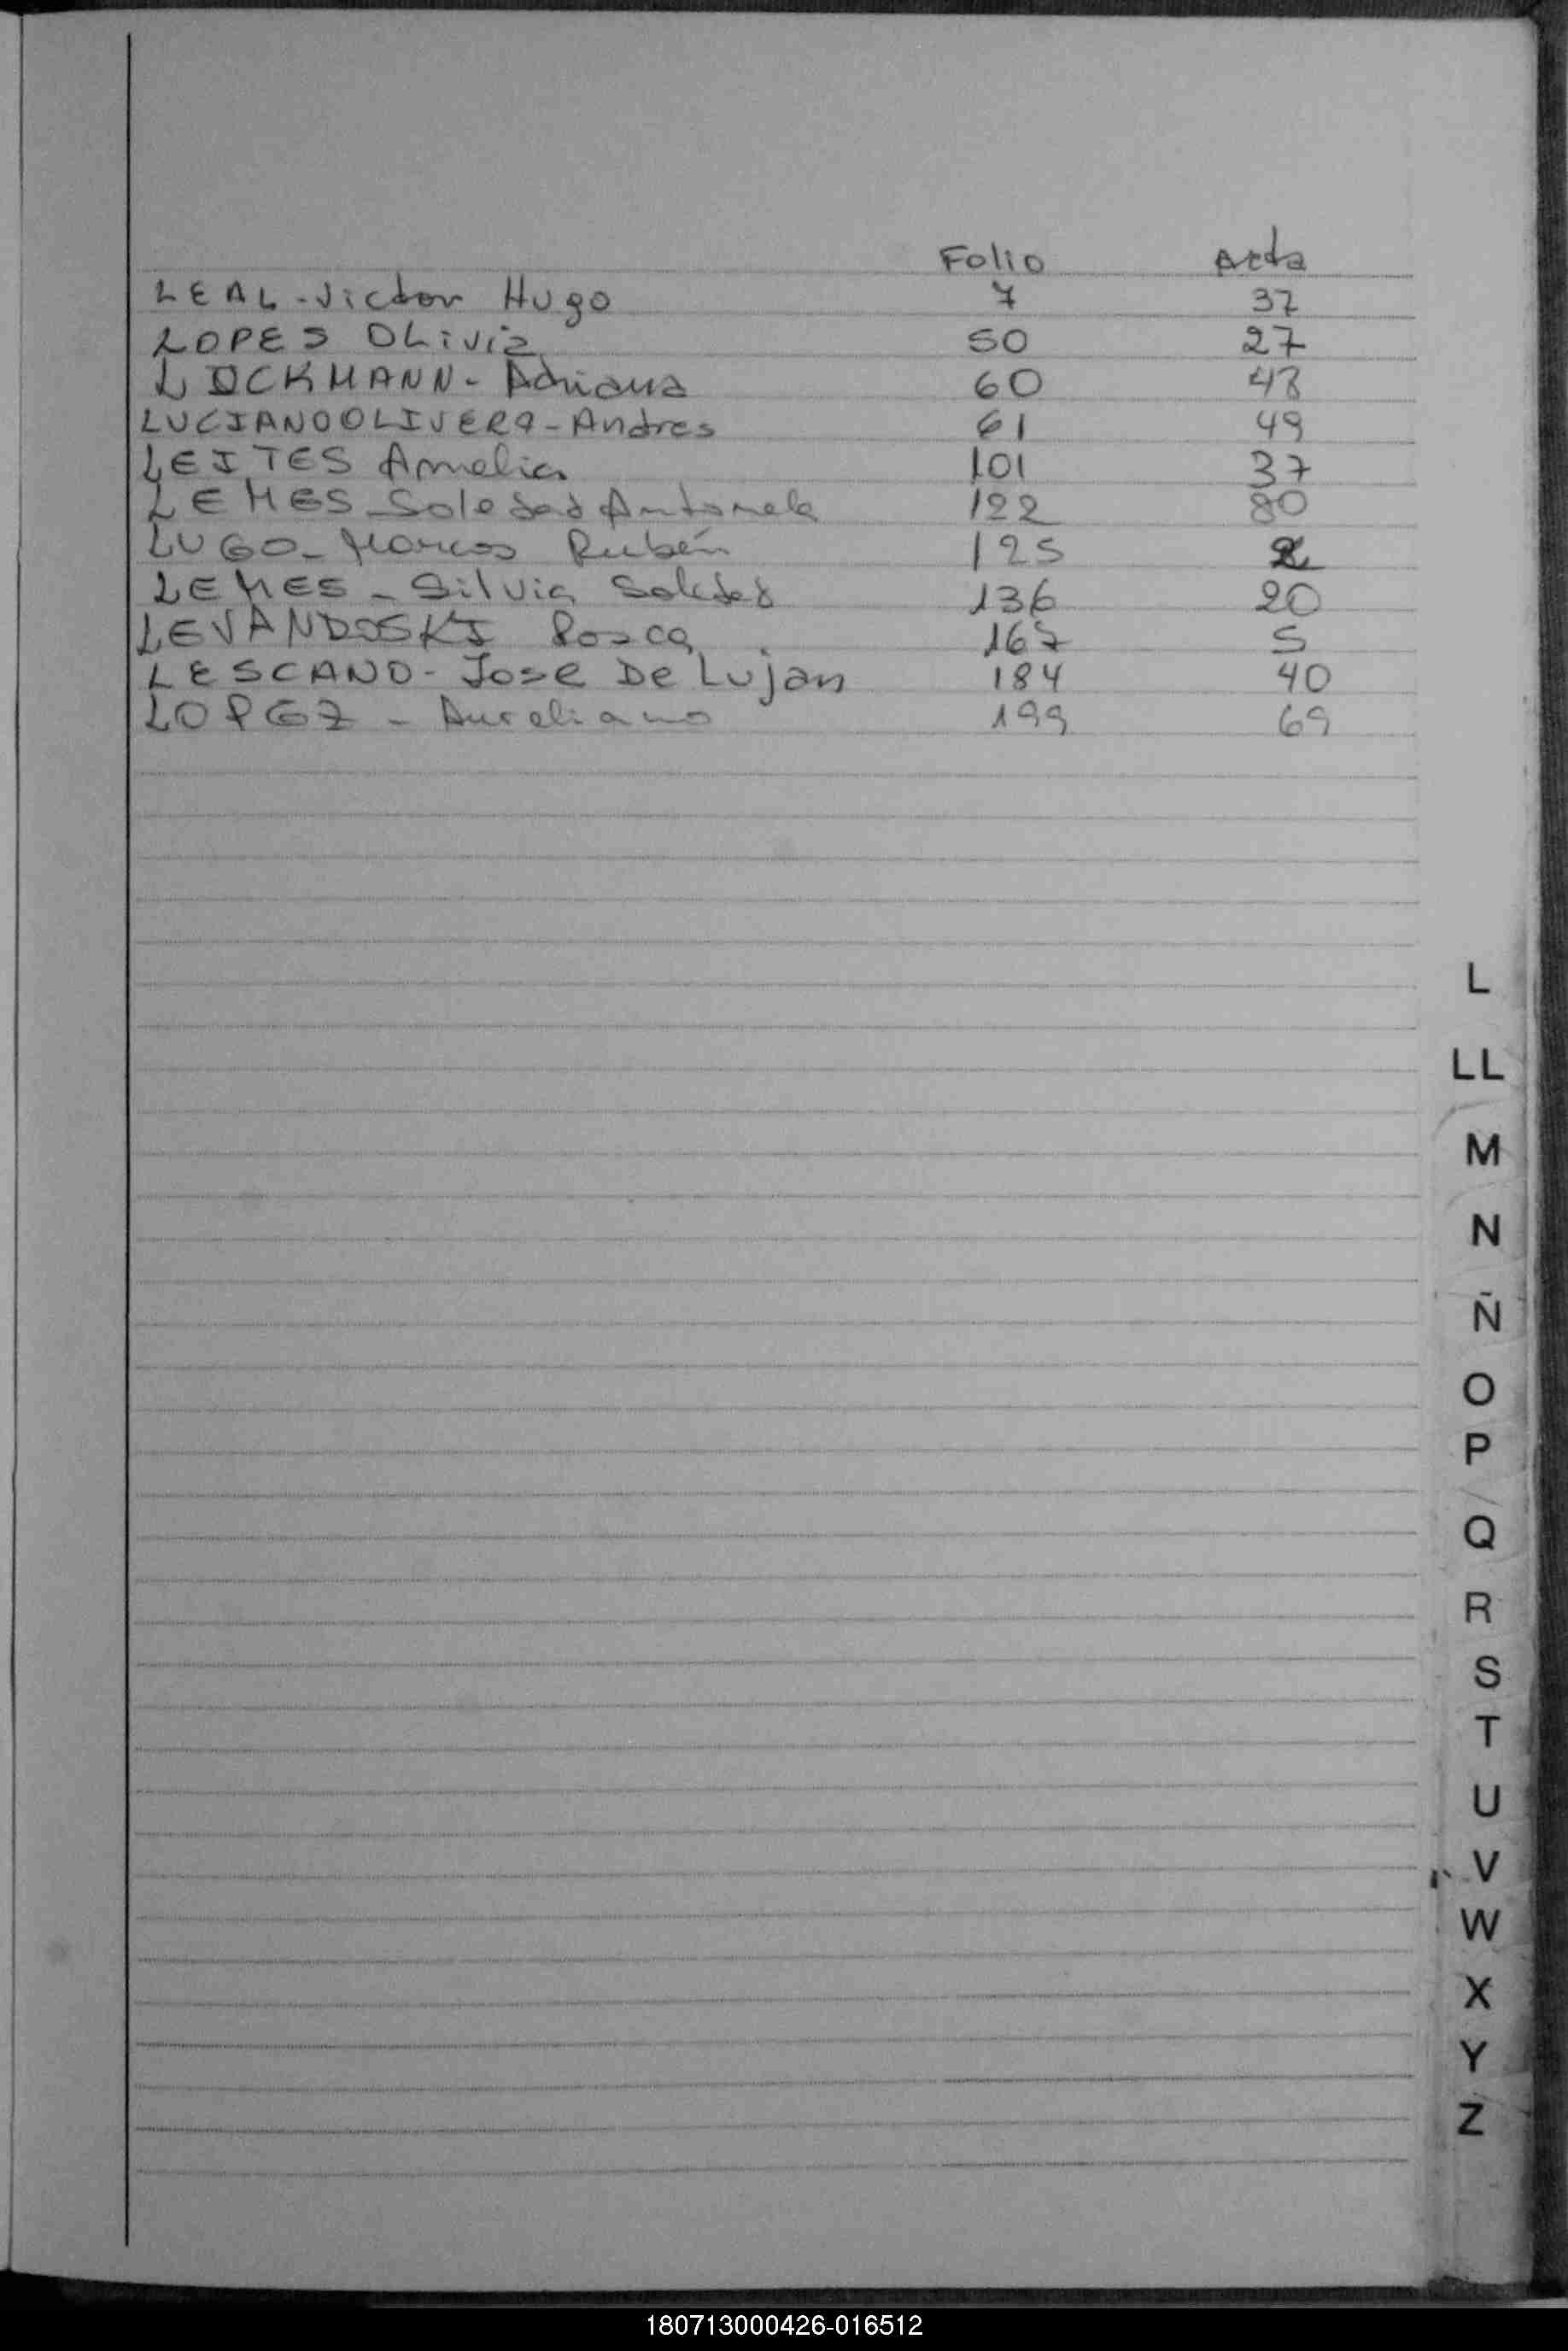 Folio Acta
LEAL - Victor Hugo 7 37
LOPES OLivia 50 27
LOCKMANN - Adriana 60 48
LUCIANO OLIVERA - Andres 61 49
LEITES Amelia 101 37
LEMES - Soledad Antonela 122 80
LUGO - Marcos Rubén 125 2
LEMES - Silvia Soledad 136 20
LEVANDOSKI 167 5
LESCANO - Jose De Lujan 184 40
LOPEZ - Aureliano 199 69
L
LL
M
N
Ñ
O
P
Q
R
S
T
U
V
W
X
Y
Z
180713000426-016512